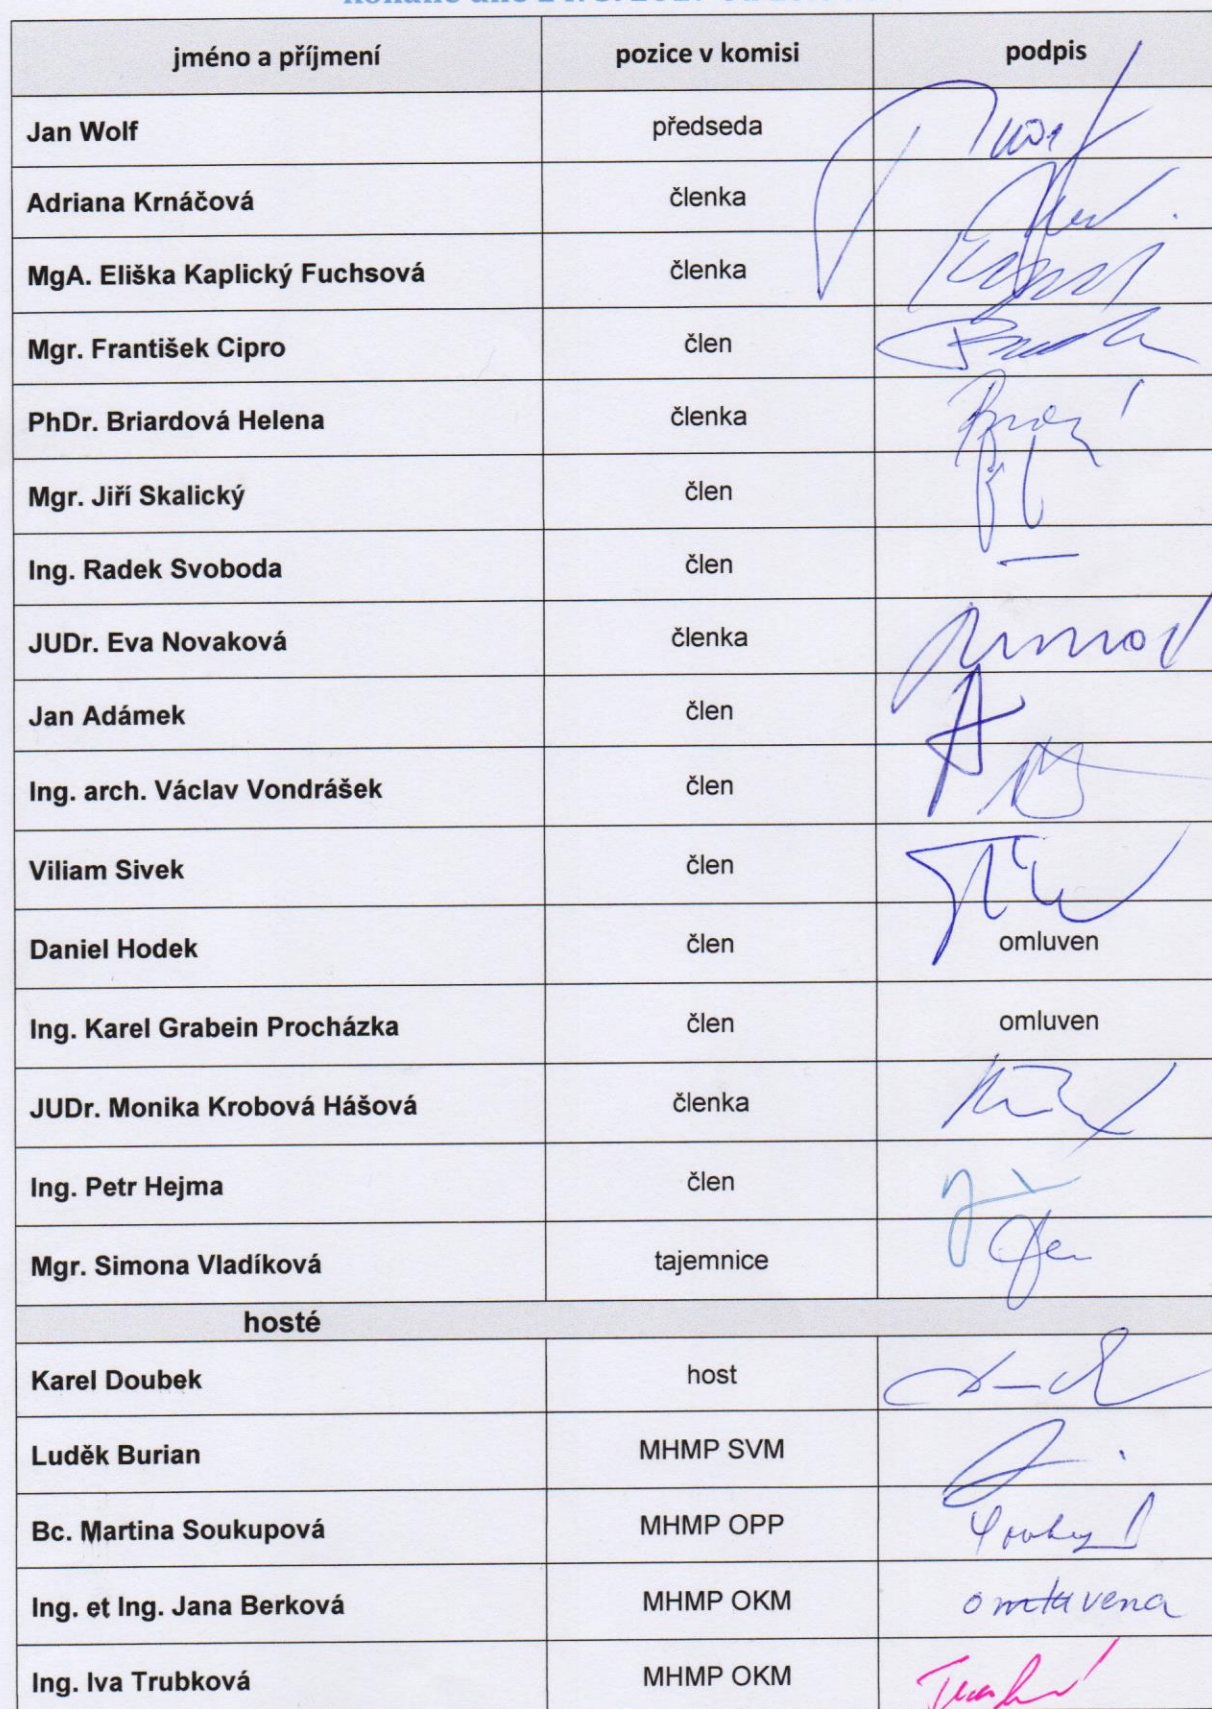 jméno a příjmení pozice v komisi podpis
Jan Wolf předseda
Adriana Krnáčová členka
MgA. Eliška Kaplický Fuchsová členka
Mgr. František Cipro člen
PhDr. Briardová Helena členka
Mgr. Jiří Skalický člen
Ing. Radek Svoboda člen —
JUDr. Eva Novaková členka
Jan Adámek člen
Ing. arch. Václav Vondrášek člen
Viliam Sivek člen
Daniel Hodek člen omluven
Ing. Karel Grabein Procházka člen omluven
JUDr. Monika Krobová Hášová členka
Ing. Petr Hejma člen
Mgr. Simona Vladíková tajemnice
hosté
Karel Doubek host
Luděk Burian MHMP SVM
Bc. Martina Soukupová MHMP OPP
Ing. et Ing. Jana Berková MHMP OKM omluvena
Ing. Iva Trubková MHMP OKM